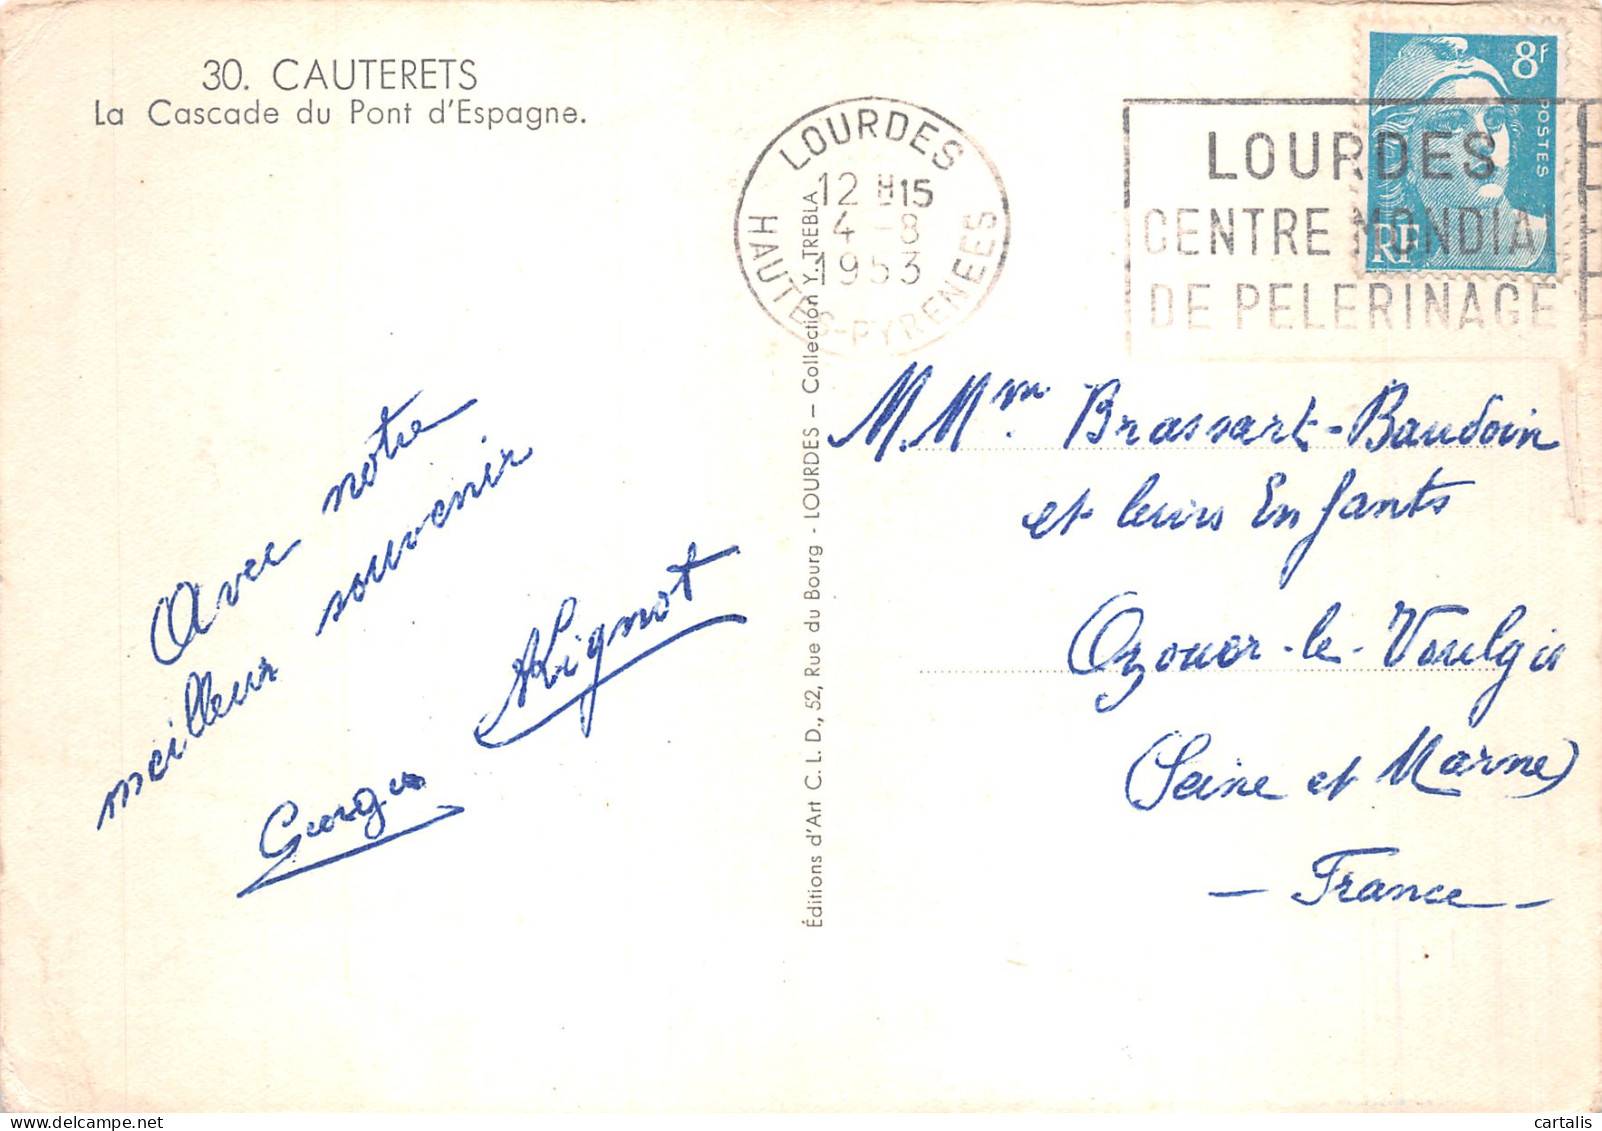 30. CAUTERETS
La Cascade du Pont d'Espagne.
LOURDES
12 H15
4 -8
1953
HAUTES-PYRENEES
LOURDES
CENTRE MONDIAL
DE PELERINAGE
8F
POSTES
RF
Avec notre
meilleur souvenir
Georges
Éditions d'Art C. L. D., 52, Rue du Bourg - LOURDES – Collection Y. TREBLA
M. Mme. Brassart-Baudoin
et leurs Enfants
Ozouer-le-Voulgis
(Seine et Marne)
- France -
cartalis